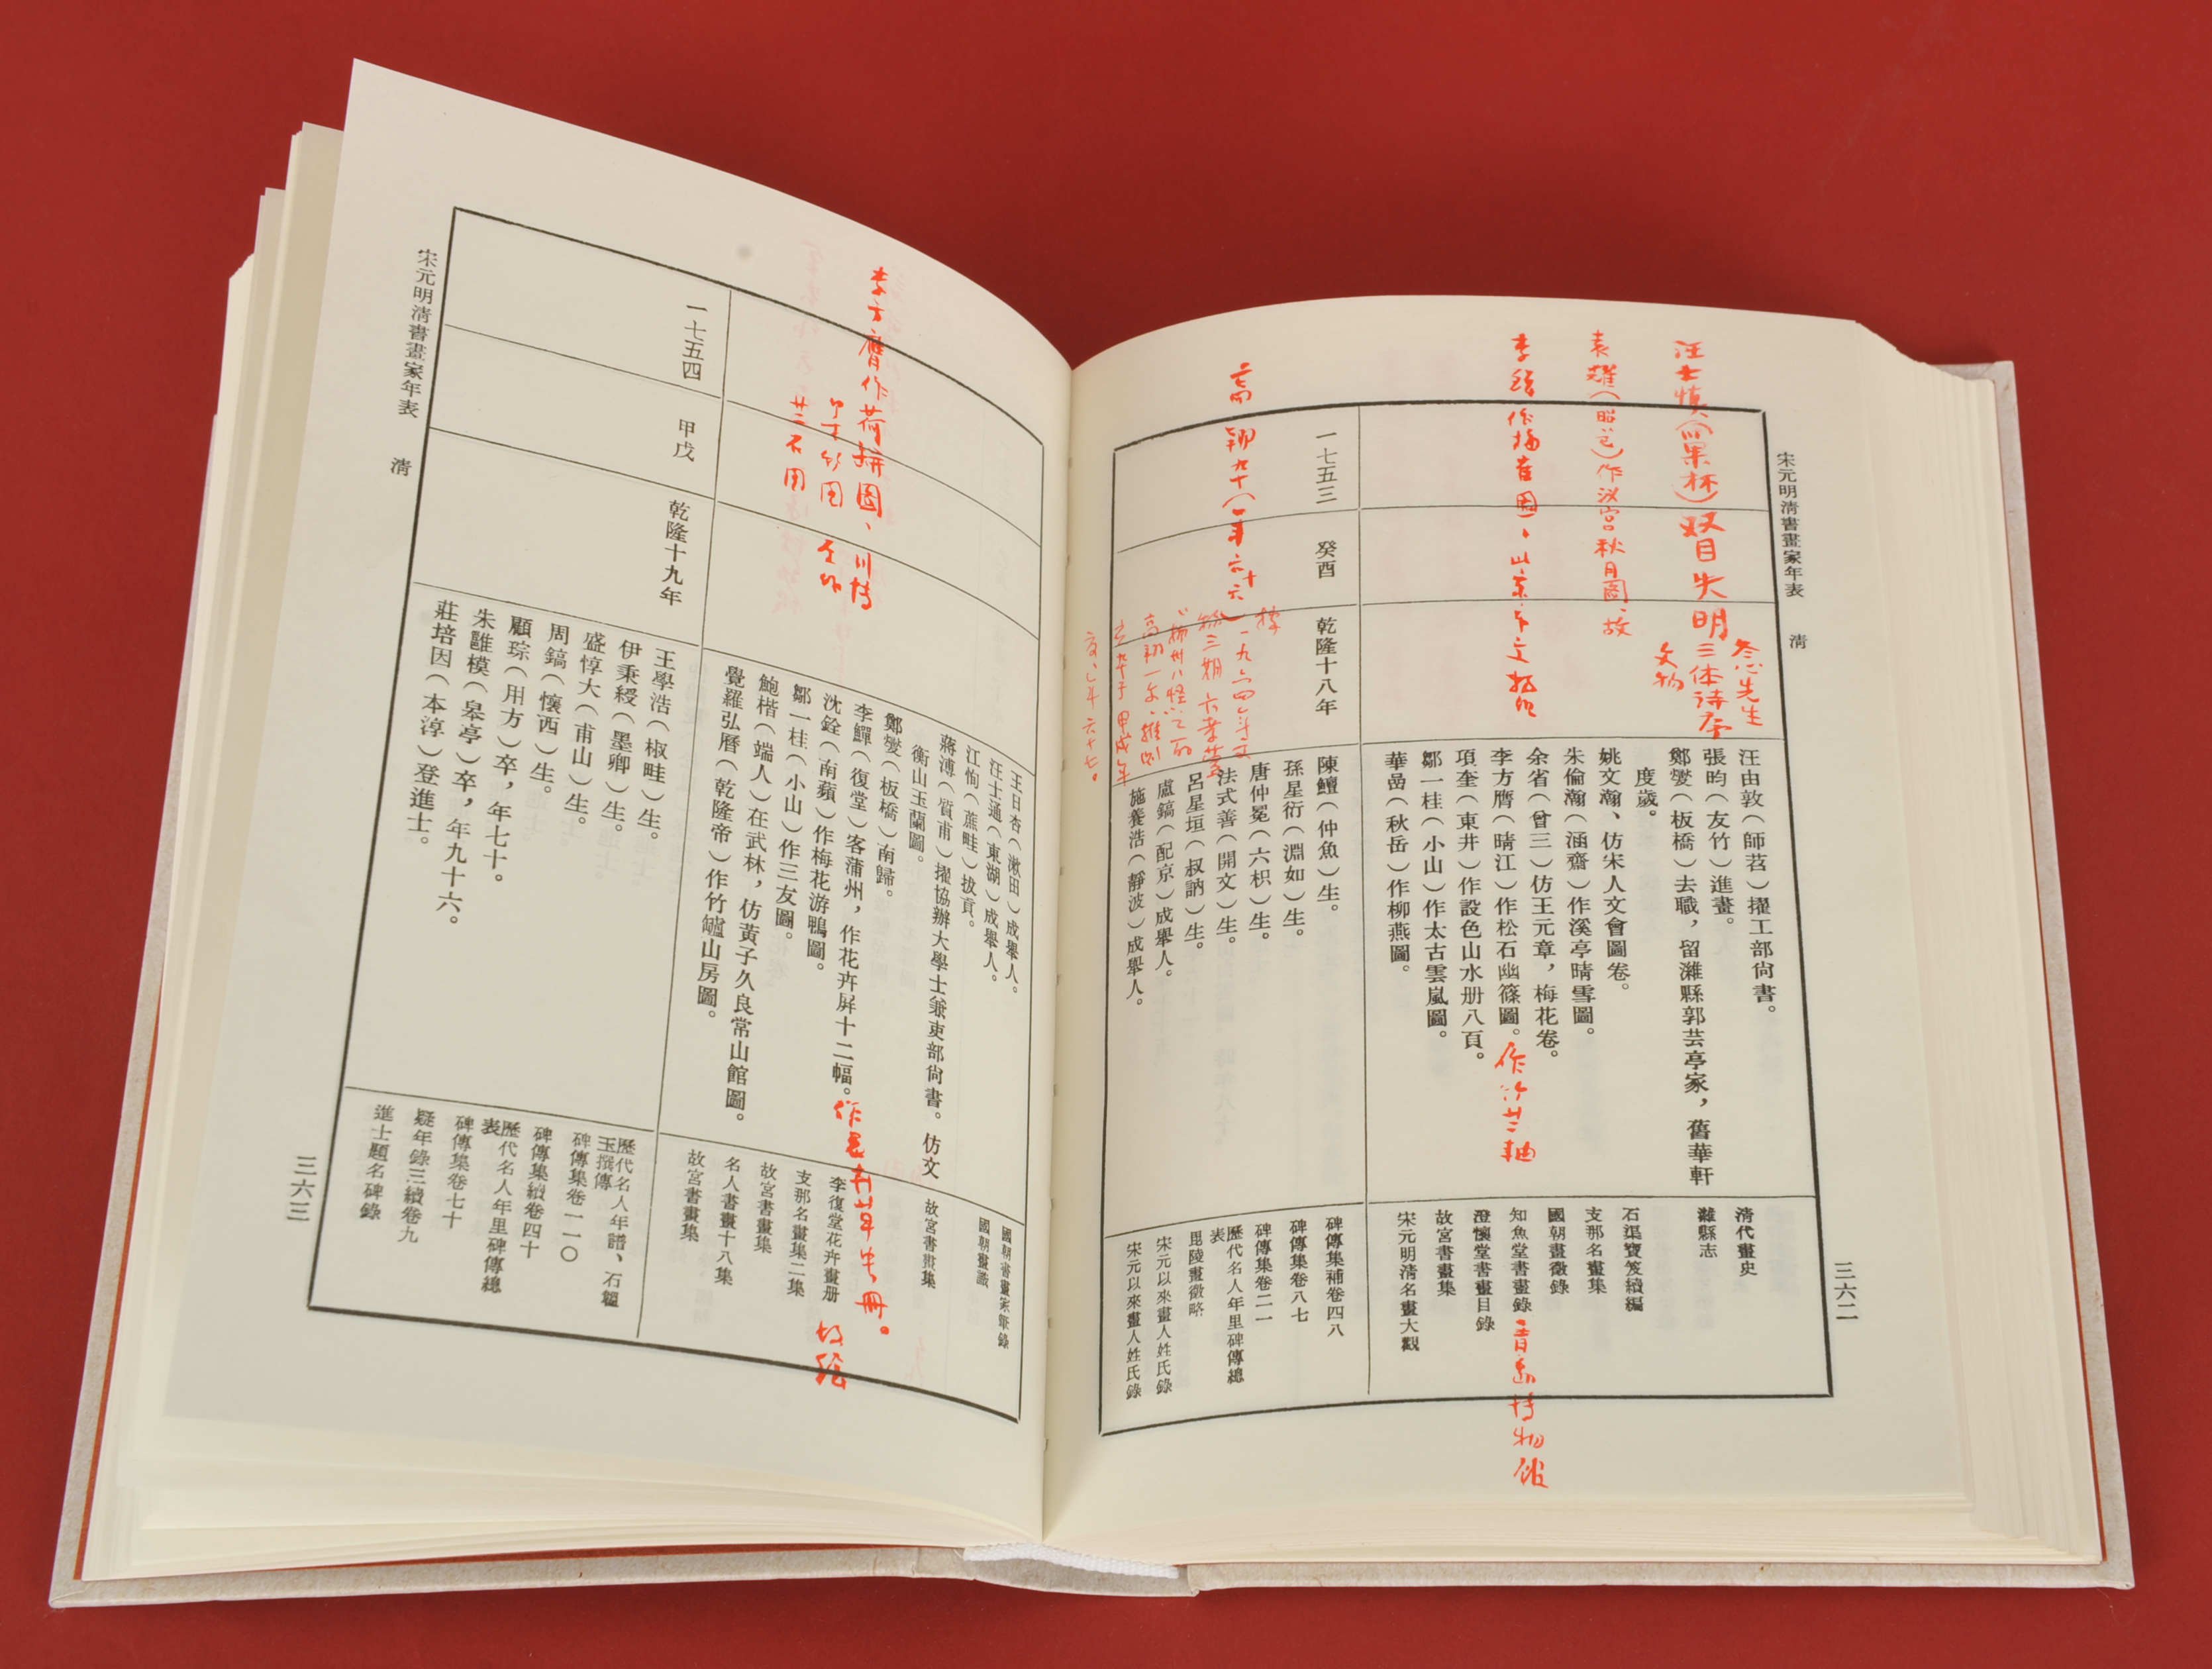 宋元明淸書畫家年表
淸
三六二
汪士慎(巢林)双目失明
袁耀(昭道)作汉宫秋月圖、故
汪由敦（師苕）擢工部尙書。
張昀（友竹）進畫。
鄭燮（板橋）去職，留濰縣郭芸亭家，舊華軒
度歲。
姚文瀚、仿宋人文會圖卷。
朱倫瀚（涵齋）作溪亭晴雪圖。
余省（曾三）仿王元章，梅花卷。
李方膺（晴江）作松石幽篠圖。作竹蘭軸
項奎（東井）作設色山水册八頁。
鄒一桂（小山）作太古雲嵐圖。
華嵒（秋岳）作柳燕圖。
淸代畫史
濰縣志
石渠寶笈續編
支那名畫集
國朝畫徵錄
知魚堂書畫錄
青島博物館
澄懷堂書畫目錄
故宮書畫集
宋元明淸名畫大觀
一七五三
癸酉
乾隆十八年
陳鱣（仲魚）生。
孫星衍（淵如）生。
唐仲冕（六枳）生。
法式善（開文）生。
呂星垣（叔訥）生。
盧鎬（配京）成舉人。
施養浩（靜波）成舉人。
碑傳集補卷四八
碑傳集卷八七
碑傳集卷二一
歷代名人年里碑傳總
表
毘陵畫徵略
宋元以來畫人姓氏錄
宋元以來畫人姓氏錄
李方膺作荷花圖、川博
王日杏（漱田）成舉人。
汪士通（東湖）成舉人。
江恂（蔗畦）拔貢。
蔣溥（質甫）擢協辦大學士兼吏部尙書。仿文
衡山玉蘭圖。
鄭燮（板橋）南歸。
李鱓（復堂）客蒲州，作花卉屛十二幅。
沈銓（南蘋）作梅花游鴨圖。
鄒一桂（小山）作三友圖。
鮑楷（端人）在武林，仿黃子久良常山館圖。
覺羅弘曆（乾隆帝）作竹罏山房圖。
國朝書畫家筆錄
國朝畫識
故宮書畫集
李復堂花卉畫册
支那名畫集二集
故宮書畫集
名人書畫十八集
故宮書畫集
一七五四
甲戌
乾隆十九年
王學浩（椒畦）生。
伊秉綬（墨卿）生。
盛惇大（甫山）生。
周鎬（懷西）生。
顧琮（用方）卒，年七十。
朱謹模（皋亭）卒，年九十六。
莊培因（本淳）登進士。
歷代名人年譜、石韞
玉撰傳
碑傳集卷一一〇
碑傳集續卷四十
歷代名人年里碑傳總
表
碑傳集卷七十
疑年錄三續卷九
進士題名碑錄
宋元明淸書畫家年表
淸
三六三